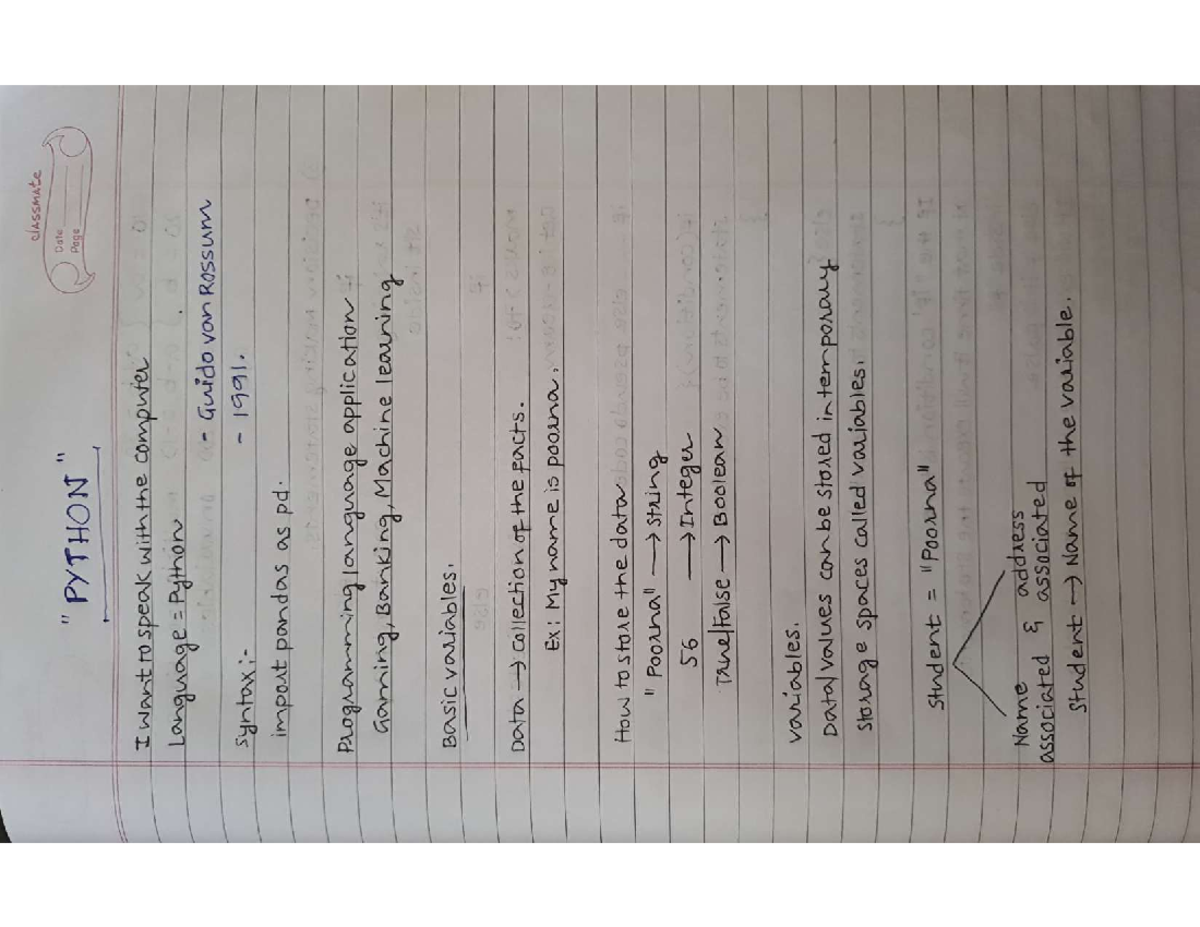 classmate
Date
Page
"PYTHON"
I want to speak with the computer
Language = Python
- Guido van Rossum
- 1991.
Syntax:-
import pandas as pd.
Programming language application
Gaming, Banking, Machine learning
Basic variables.
Data → Collection of the facts.
Ex: My name is poorna.
How to store the data
"Poorna" → String
56 → Integer
True/False → Boolean
Variables.
Data/values can be stored in temporary
storage spaces called variables.
Student = "Poorna"
Name & address
associated associated
Student → Name of the variable.